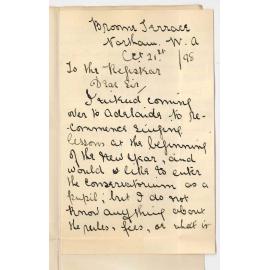 Broome Terrace
Northam. W. A
Oct 21st /98
To the Registrar
Dear Sir,
I intend coming
over to Adelaide to re-
commence singing
lessons at the beginning
of the New Year, and
would like to enter
the Conservatorium as a
pupil; but I do not
know anything about
the rules, fees, or what is